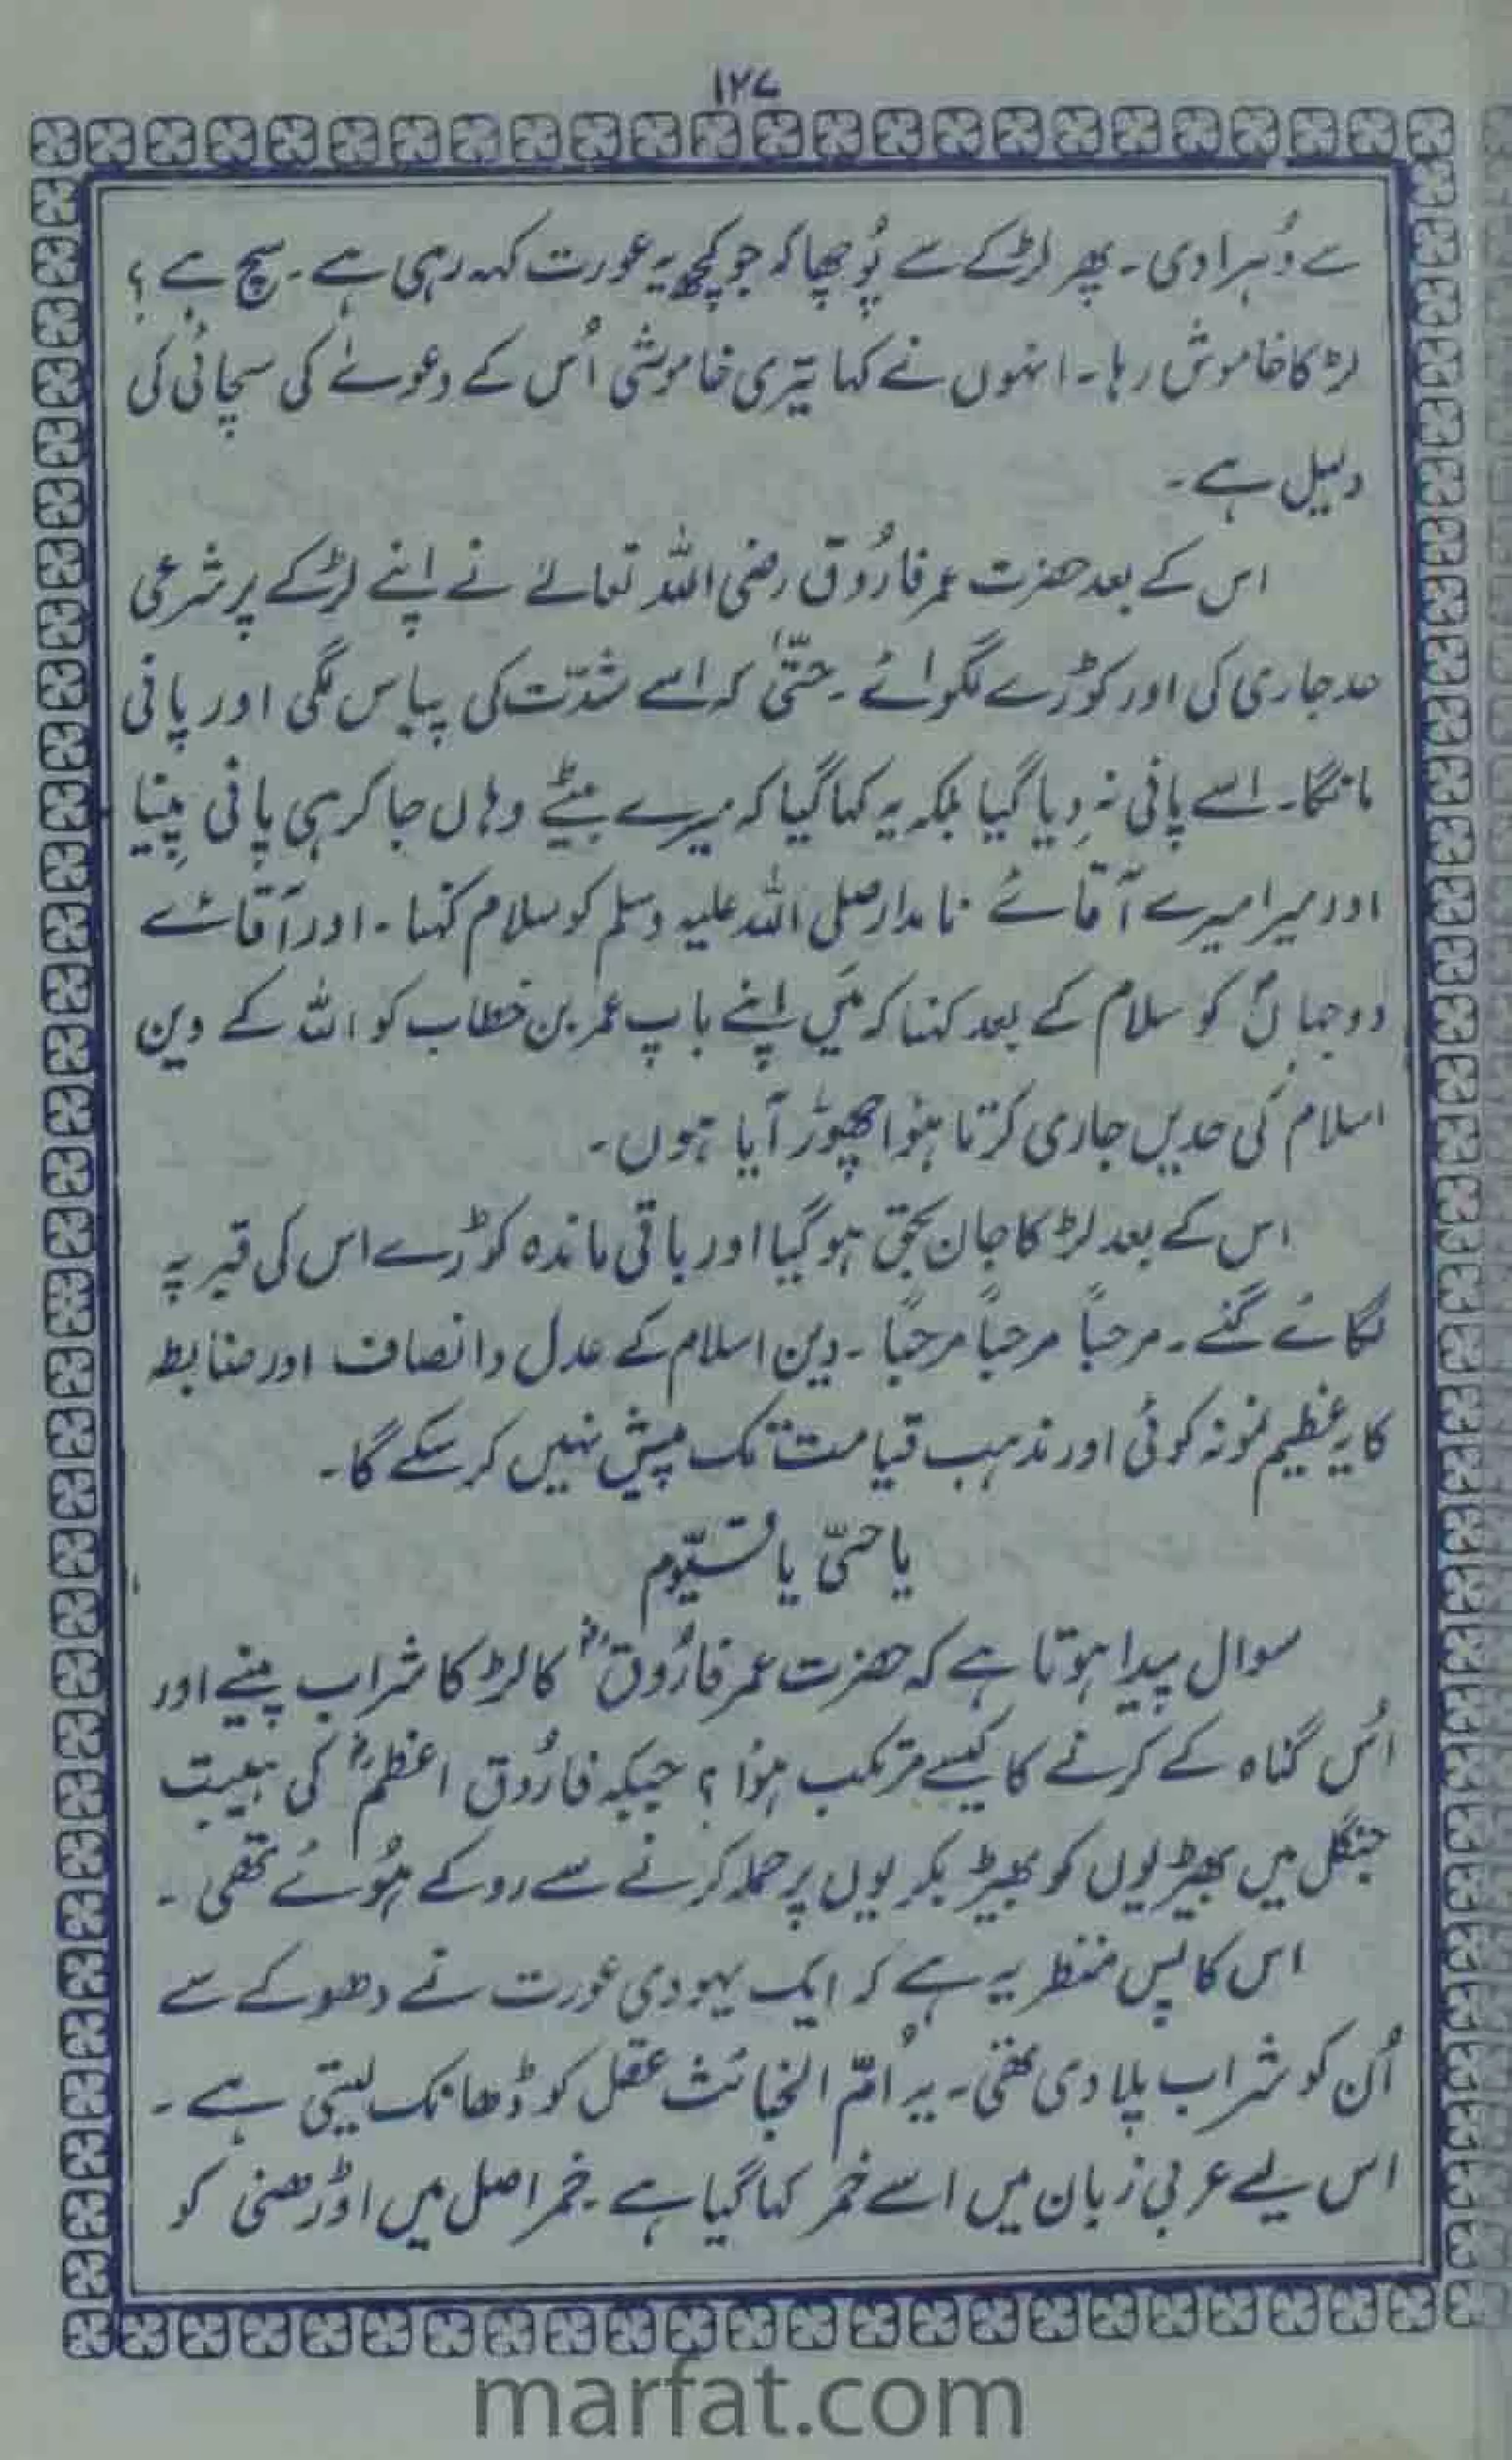 ۱۲۷
سے دُہرا دی ۔ پھر لڑکے سے پُوچھا کہ جو کچھ یہ عورت کہہ رہی ہے ۔ سچ ہے ؟
لڑکا خاموش رہا ۔ انہوں نے کہا تیری خاموشی اُس کے دعوےٰ کی سچائی کی
دلیل ہے ۔
اس کے بعد حضرت عمر فارُوق رضی اللہ تعالےٰ نے اپنے لڑکے پر شرعی
حد جاری کی اور کوڑے لگوائے ۔ حتّیٰ کہ اسے شدّت کی پیاس لگی اور پانی
مانگا ۔ اسے پانی نہ دِیا گیا بلکہ یہ کہا گیا کہ میرے بیٹے وہاں جا کر ہی پانی پِینا
اور میرا میرے آقائے نامدار صلی اللہ علیہ وسلم کو سلام کہنا ۔ اور آقائے
دو جہاںؐ کو سلام کے بعد کہنا کہ مَیں اپنے باپ عمر بن خطاب کو اللہ کے دین
اسلام کی حدیں جاری کرتا ہوُا چھوڑ آیا ہوں ۔
اس کے بعد لڑکا جان بحق ہو گیا اور باقی ماندہ کوڑے اس کی قبر پہ
لگائے گئے ۔ مرحباً مرحباً مرحباً ۔ دین اسلام کے عدل و انصاف اور ضابطہ
کا یہ عظیم نمونہ کوئی اور مذہب قیامت تک پیش نہیں کر سکے گا ۔
یا حیّ یا قیّوم
سوال پیدا ہوتا ہے کہ حضرت عمر فارُوقؓ کا لڑکا شراب پینے اور
اُس گناہ کے کرنے کا کیسے مرتکب ہوُا ؟ جبکہ فارُوق اعظمؓ کی ہیبت
جنگل میں بھیڑیوں کو بھیڑ بکریوں پر حملہ کرنے سے روکے ہُوئے تھی ۔
اس کا پس منظر یہ ہے کہ ایک یہودی عورت نے دھوکے سے
اُن کو شراب پلا دی تھی ۔ یہ اُمّ الخبائث عقل کو ڈھانک لیتی ہے ۔
اس لیے عربی زبان میں اسے خمر کہا گیا ہے ۔ خمر اصل میں اوڑھنی کو
marfat.com